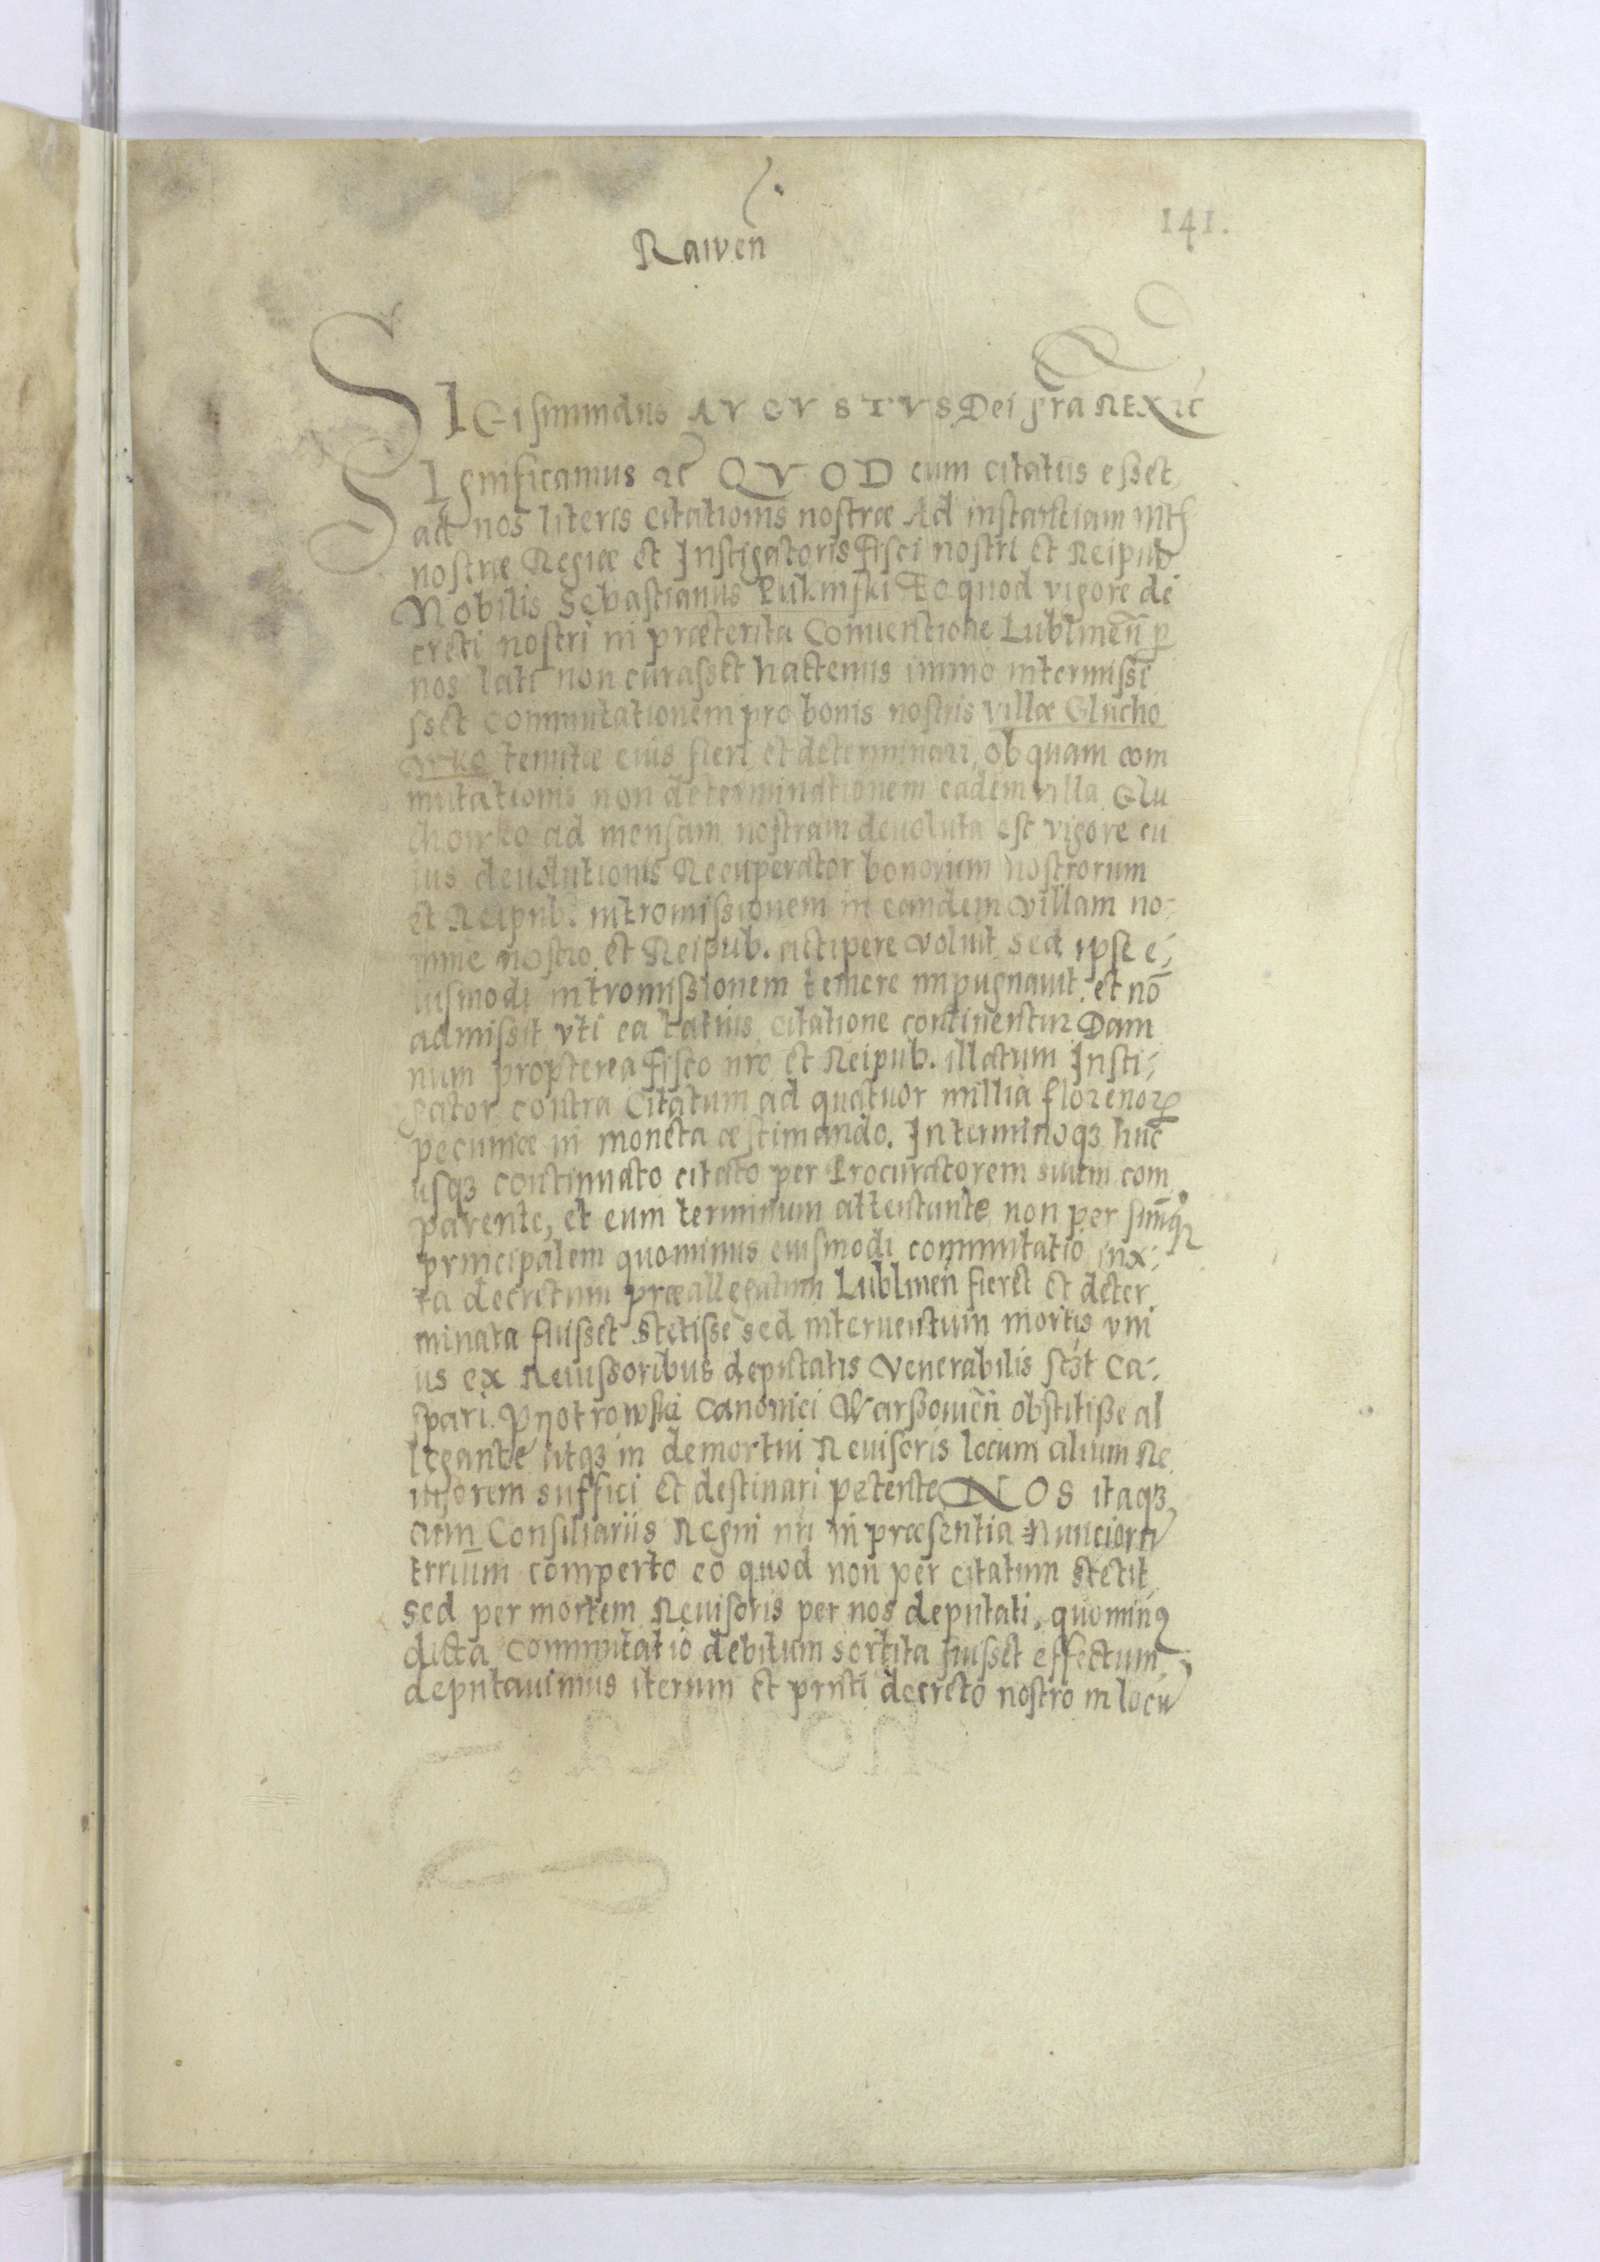 141.
Rawen̄
SIGismundus AVGVSTVS Dei gr̄a REX ꝛc̄
SIgnificamus ꝛc̄ QVOD cum citatus esset
ad nos literis citationis nostræ Ad instantiam
nostræ Regiæ et Instigatoris Fisci nostri et Reipub.
Nobilis Sebastianus Lukinski Eo quod vigore de
creti nostri in præterita Conuentione Lublinen̄ p
nos lati non curasset hactenus immo intermisi
sset commutationem pro bonis nostris villæ Glucho
wko tenutæ eius fieri et determinari, ob quam com
mutationis non determinationem eadem villa Glu
chowko ad mensam nostram deuoluta est vigore cu
ius deuolutionis Recuperator bonorum nostrorum
et Reipub. intromissionem in eandem villam no-
mine nostro et Reipub. accipere voluit, sed ipse e-
iusmodi intromissionem temere impugnauit, et nō
admissit vti ea latius citatione continentur Dam
num propterea Fisco nr̄o et Reipub. illatum Insti-
gator contra Citatum ad quatuor millia florenoꝝ
pecuniæ in moneta æstimando. In terminoqꝫ huc
usqꝫ continuato citato per Procuratorem suum com
parente, et eum terminum attentante non per
principalem quominus eiusmodi commutatio iux-
ta decretum præallegatum Lublinen̄ fieret et deter
minata fuisset Stetisse sed interuentum mortis vni
us ex Reuissoribus deputatis Venerabilis Ca-
spari Pyotrowski Canonici Warssouien̄ obstitisse al
legante utqꝫ in demortui Reuisoris locum alium Re
uisorem suffici et destinari petente NOS itaqꝫ
cum Consiliariis Regni nr̄i in præsentia Nuncioru
trriūm comperto eo quod non per citatum stetit
sed per mortem Reuisoris per nos deputati, quominꝰ
dicta commutatio debitum sortita fuisset effectum,
deputauimus iterum et prn̄ti decreto nostro in locū